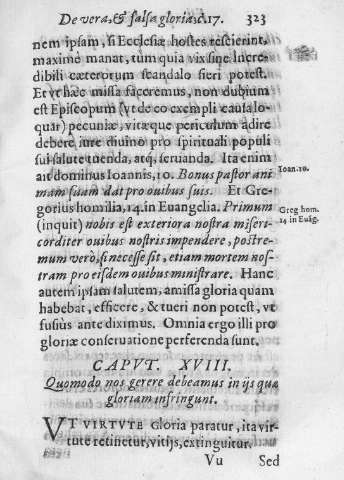 De vera, & falsa gloria, c.17. 323
nem ipsam, si Ecclesiæ hostes rescierint,
maxime manat, tùm quia vix sine incre-
dibili cæterorum scandalo fieri potest.
Et vt hæc missa faceremus, non dubium
est Episcopum (vt de eo exempli causa lo-
quar) pecuniæ, vitæque periculum adire
debere, iure diuino pro spirituali populi
sui salute tuenda, atq; seruanda. Ita enim
ait dominus Ioannis, 10. Bonus pastor ani
mam suam dat pro ouibus suis. Et Gre-
gorius homilia, 14. in Euangelia. Primum
(inquit) nobis est exteriora nostra miseri-
corditer ouibus nostris impendere, postre-
mum verò, si necesse sit, etiam mortem nos-
tram pro eisdem ouibus ministrare. Hanc
autem ipsam salutem, amissa gloria quam
habebat, efficere, & tueri non potest, vt
fusiùs ante diximus. Omnia ergo illi pro
gloriæ conseruatione perferenda sunt.
Ioan. 10.
Greg hom.
14 in Euãg.
CAPVT. XVIII.
Quomodo nos gerere debeamus in ijs quæ
gloriam infringunt.
VT VIRTVTE Gloria paratur, ita vir-
tute retinetur, vitijs, extinguitur.
Vu Sed